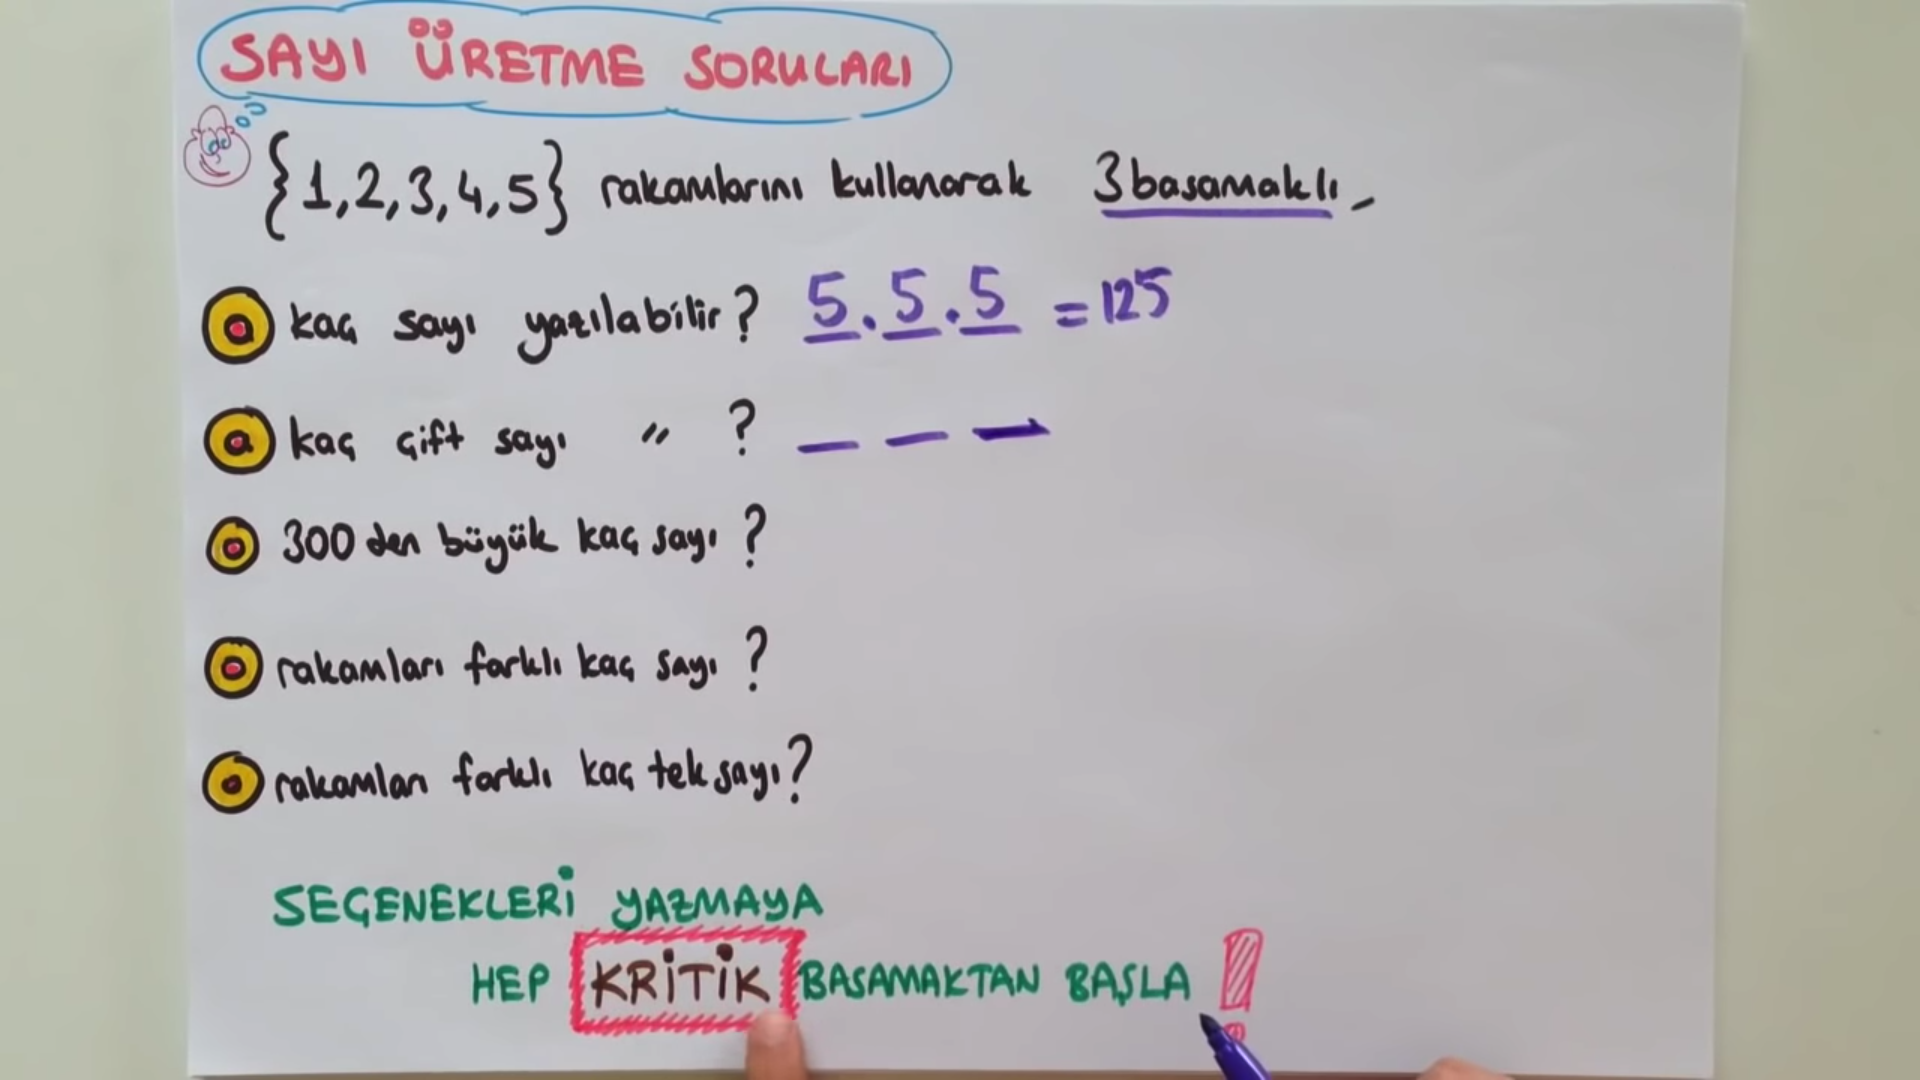 SAYI ÜRETME SORULARI
{1,2,3,4,5} rakamlarını kullanarak 3 basamaklı,
a kaç sayı yazılabilir? 5.5.5 = 125
a kaç çift sayı " ? _ _ _
300 den büyük kaç sayı ?
rakamları farklı kaç sayı ?
rakamları farklı kaç tek sayı?
SEÇENEKLERİ YAZMAYA
HEP KRİTİK BASAMAKTAN BAŞLA !